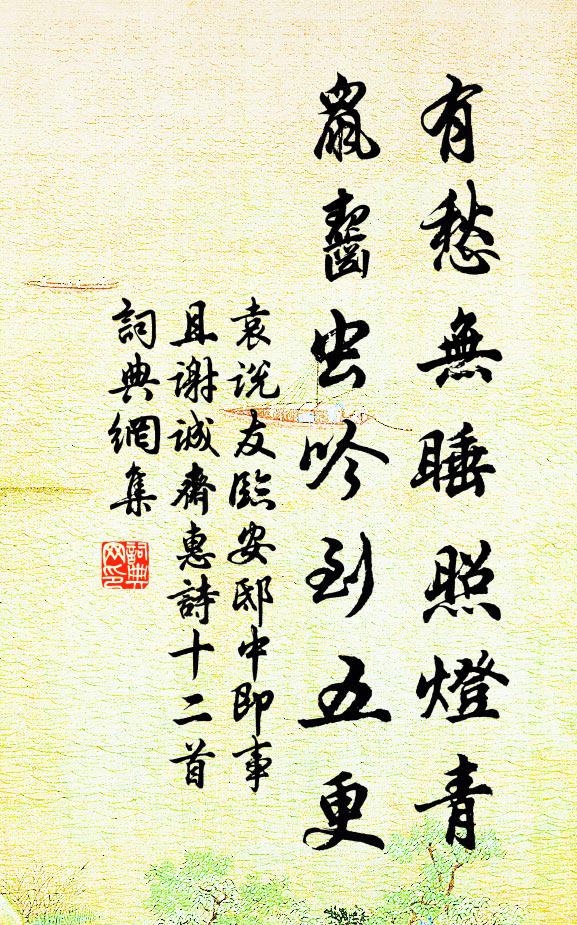 有愁無睡照燈青
鼠齧虫吟到五更
袁说友臨安邸中即事
且謝诚齋惠詩十二首
詞典網集
詞典网印